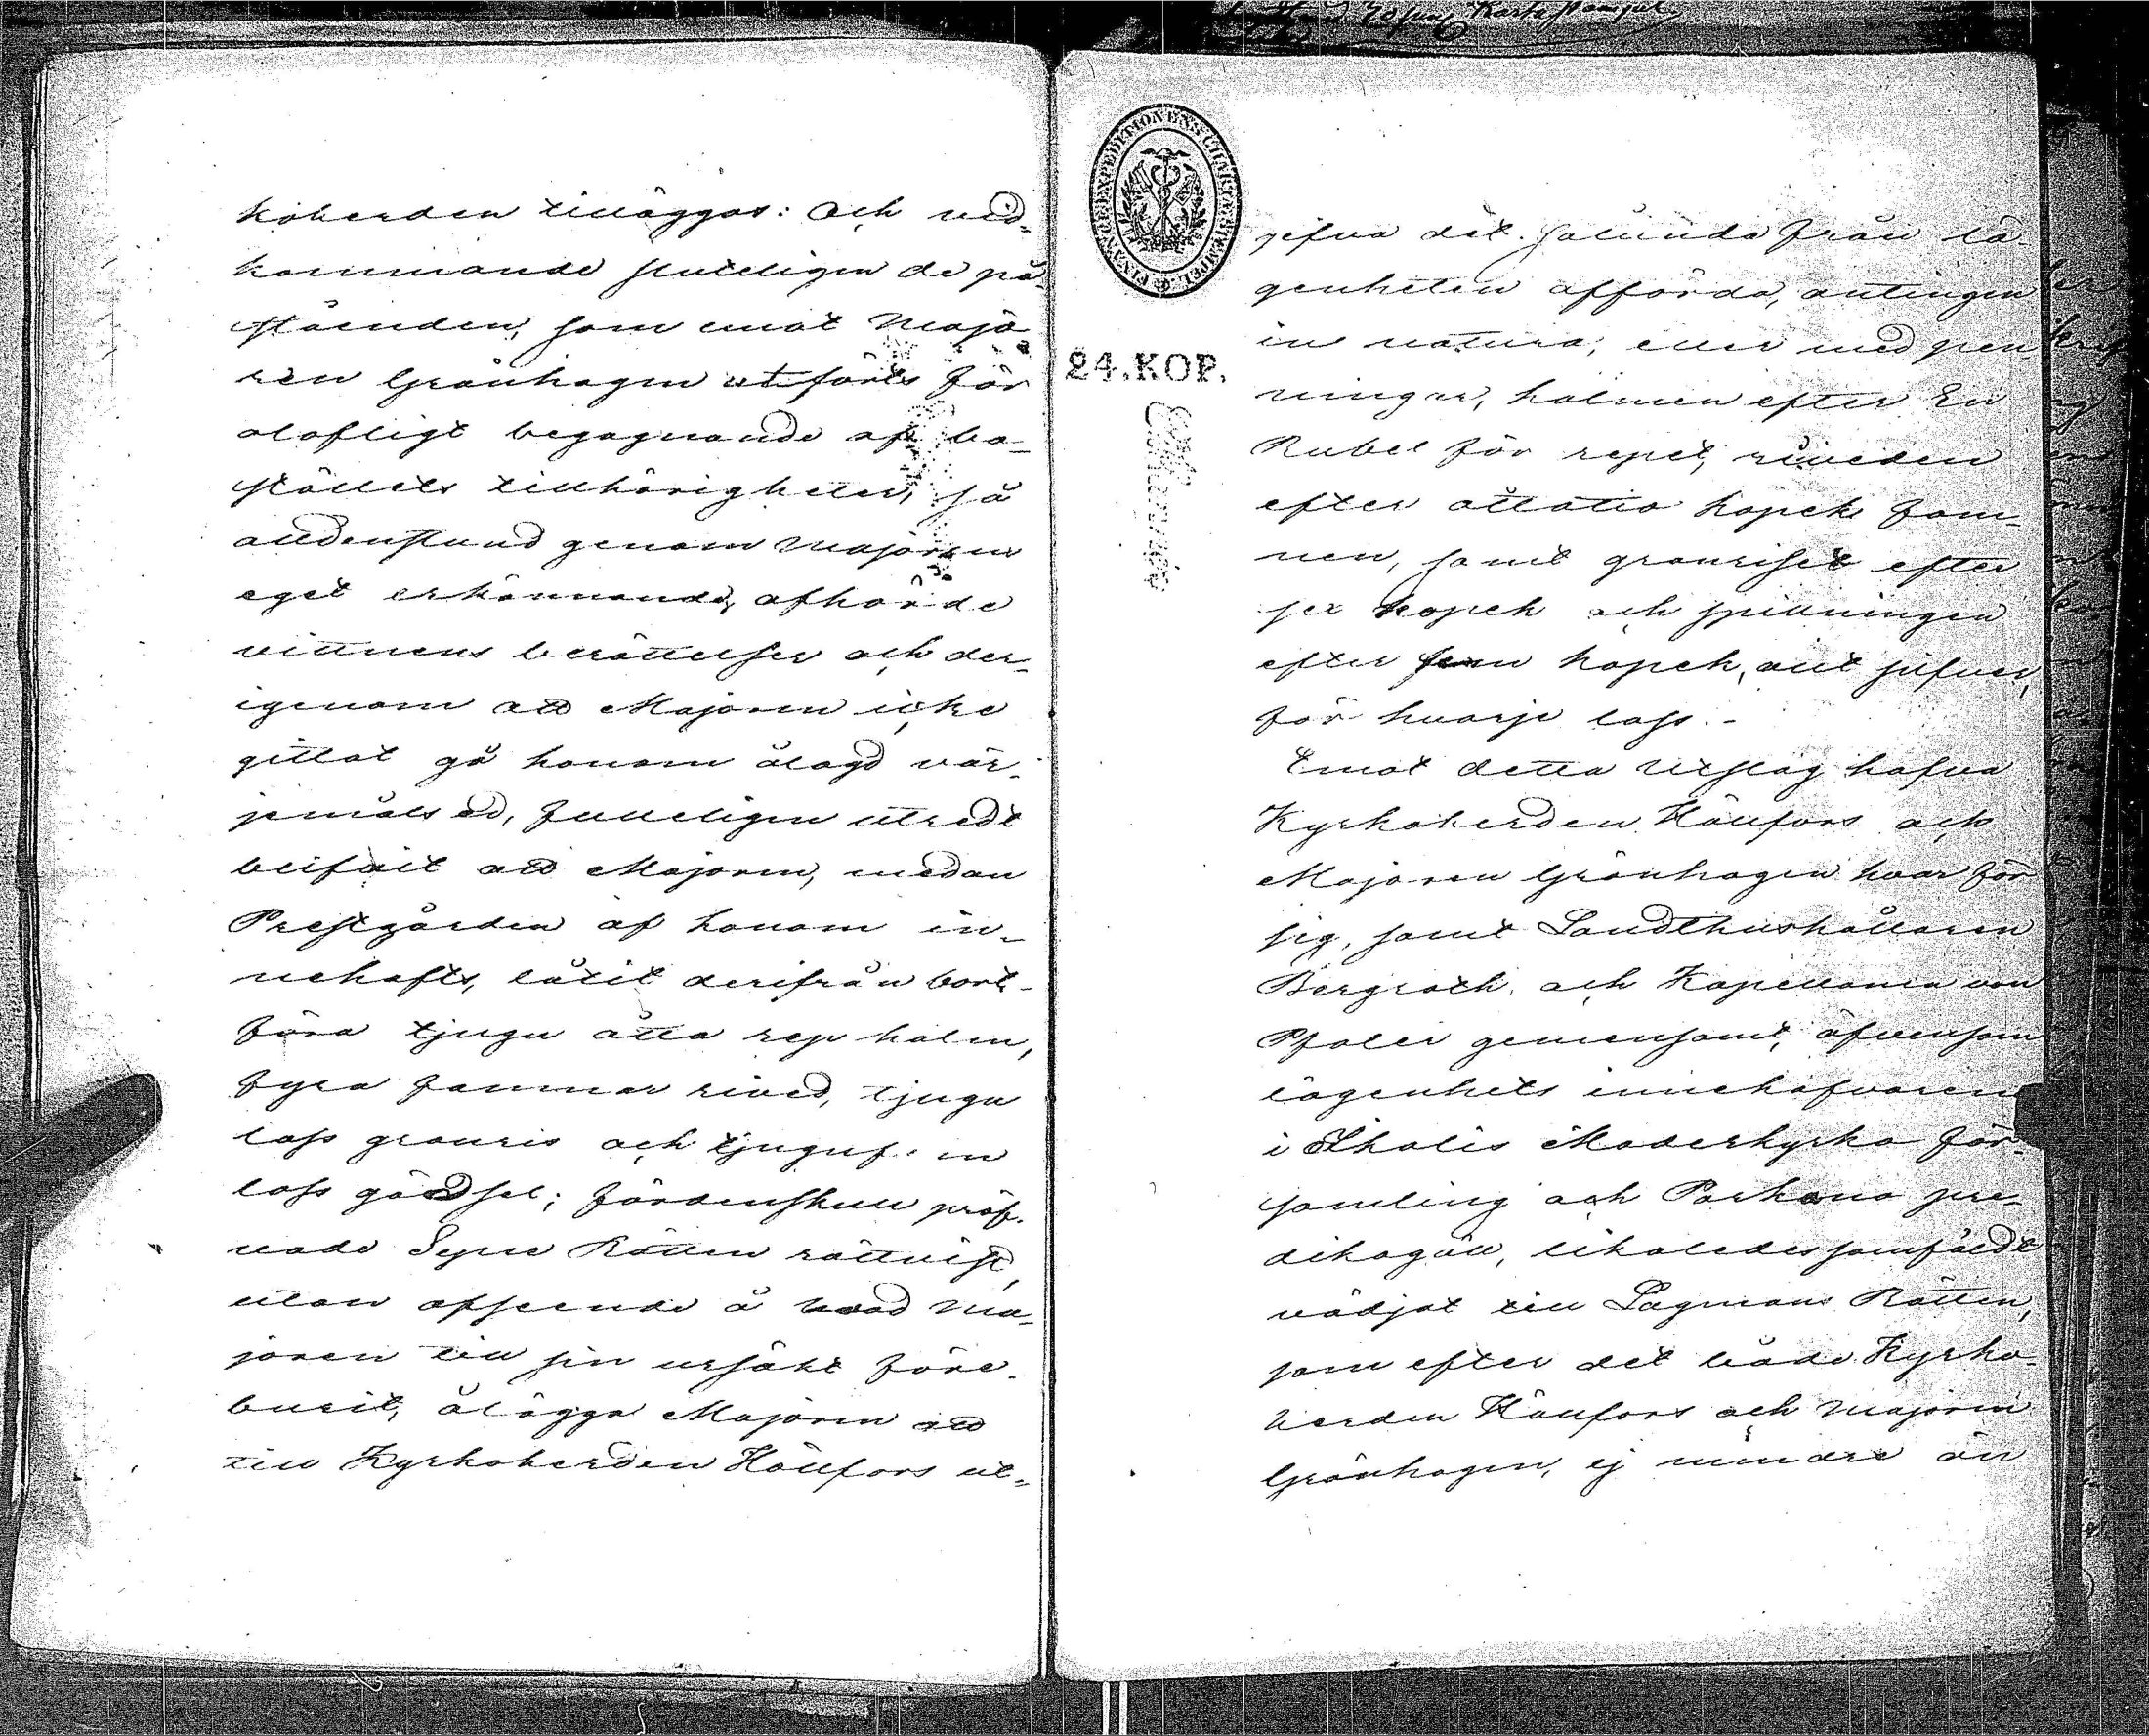 koherden tilläggas: och ved¬
kommande sluteligen de på¬
ståenden, som emot Majo¬
ren Grönhagen utförts för
olofligt begagnande af bo¬
ställets tillhörigheter, så
aldenstund genom Majorens
eget erkännande, afhörde
vittnens berättelser och der¬
igenom att Majoren icke
gittat gå honom ålagd vär¬
jemåls ed, fulleligen utredt
blifvit att Majoren, medan
Prestgården af honom in¬
nehafts, låtit derifrån bort¬
föra tjugu åtta rep halm,
fyra famnar rived, tjugu
lass granris och tjugufem
lass gödsel; fördenskull pröf¬
vade Syne Rätten rättvist,
utan afseende å hvad Ma¬
joren till sin ursäkt före¬
burit, ålägga Majoren att
till Kyrkoherden Hällfors ut¬
FINANCE EXPEDITIONENS CHARTÆ STEMPEL
24. KOP.
gifva det sålunda från lä¬
genheten afförda, antingen
in natura, eller med pen
ningar, halmen efter En
Rubel för repet, riveden
efter åttatio kopek fam¬
nen, samt granriset efter
sex kopek och spillningen
efter fem kopek, allt silfver,
för hvarje lass.-
Emot detta Utslag hafva
Kyrkoherden Hällfors och
Majoren Grönhagen hvar för
sig, samt Landthushållaren
Bergroth och Kapellanen von
Pfaler gemensamt, äfvensom
lägenhets innehafvaren
i Ikalis Moderkyrko för¬
samling och Parkano pre¬
dikogäll, likaledes samfäldt
vädjat till Lagmans Rätten,
som efter det både Kyrko¬
herden Hällfors och Majoren
Grönhagen, ej mindre än